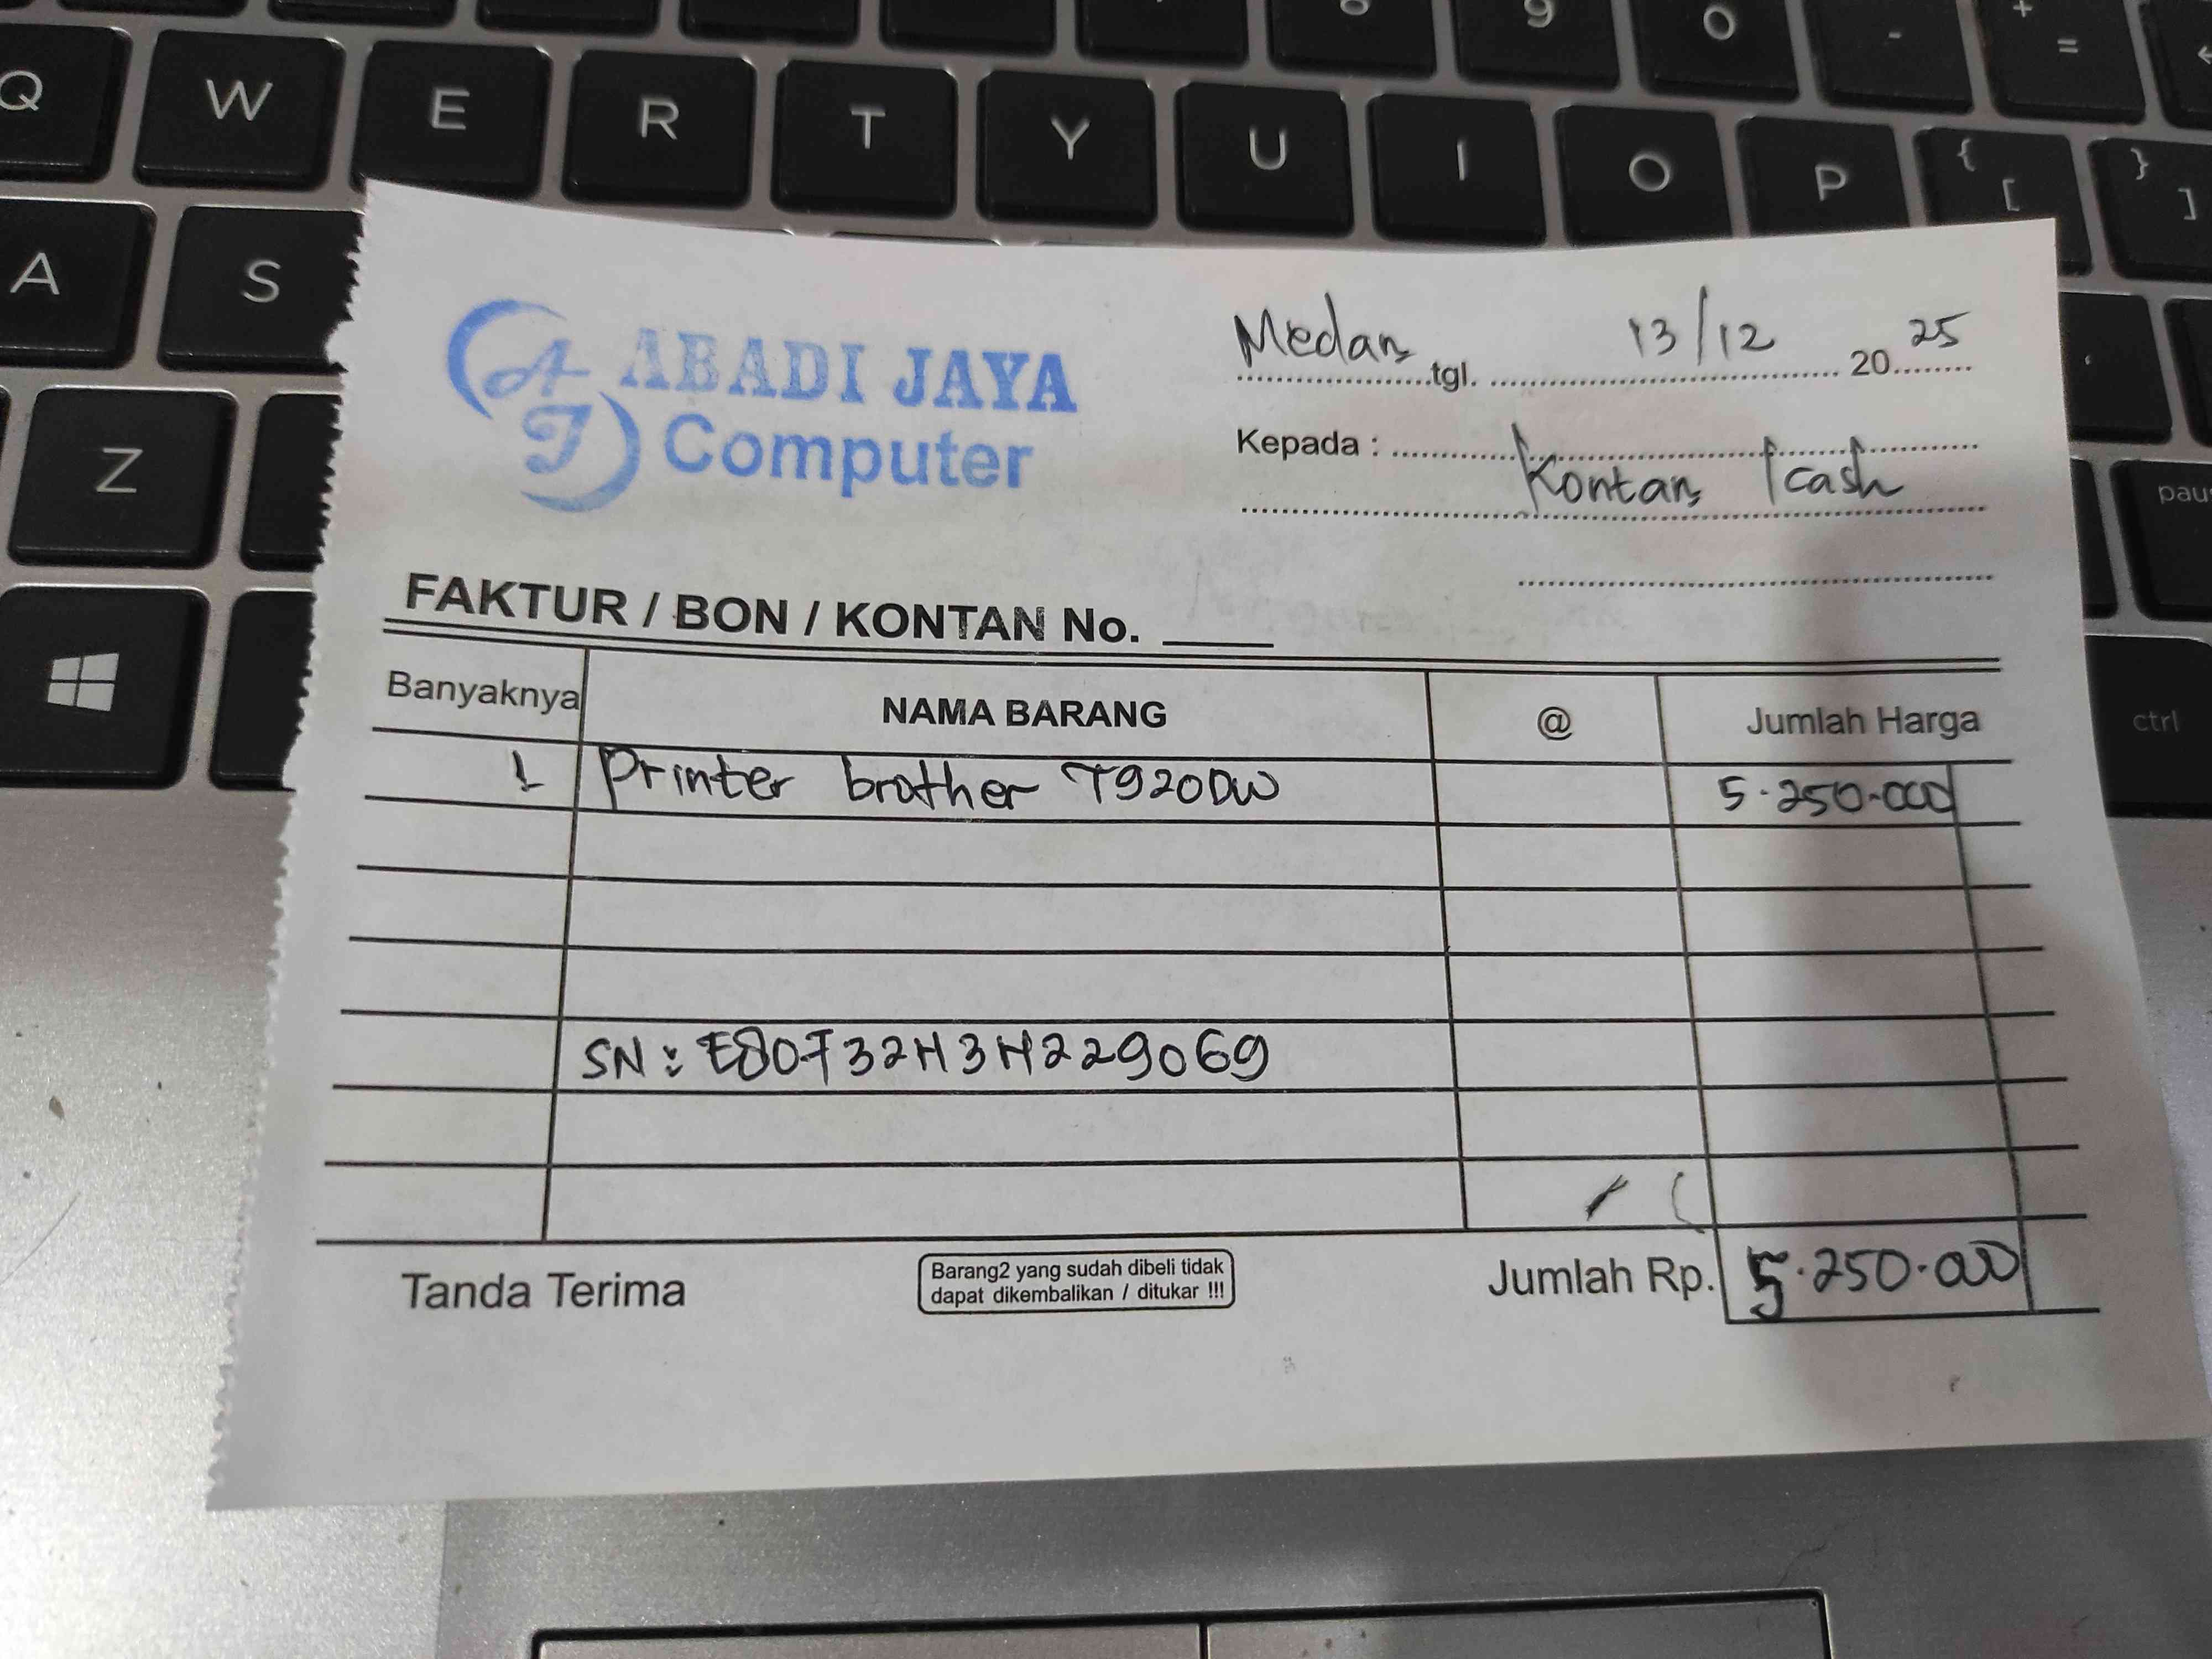 9 0 - + =
Q W E R T Y U I O P { [ } ]
A S
Z
pau
ctrl
ABADI JAYA
AJ
Computer
Medan tgl. 13/12 20 25
Kepada :
Kontan / cash
FAKTUR / BON / KONTAN No.
Banyaknya NAMA BARANG @ Jumlah Harga
1 Printer brother T920DW 5.250.000
SN : E80F32H3H229069
Tanda Terima
Barang2 yang sudah dibeli tidak
dapat dikembalikan / ditukar !!!
Jumlah Rp. 5.250.000